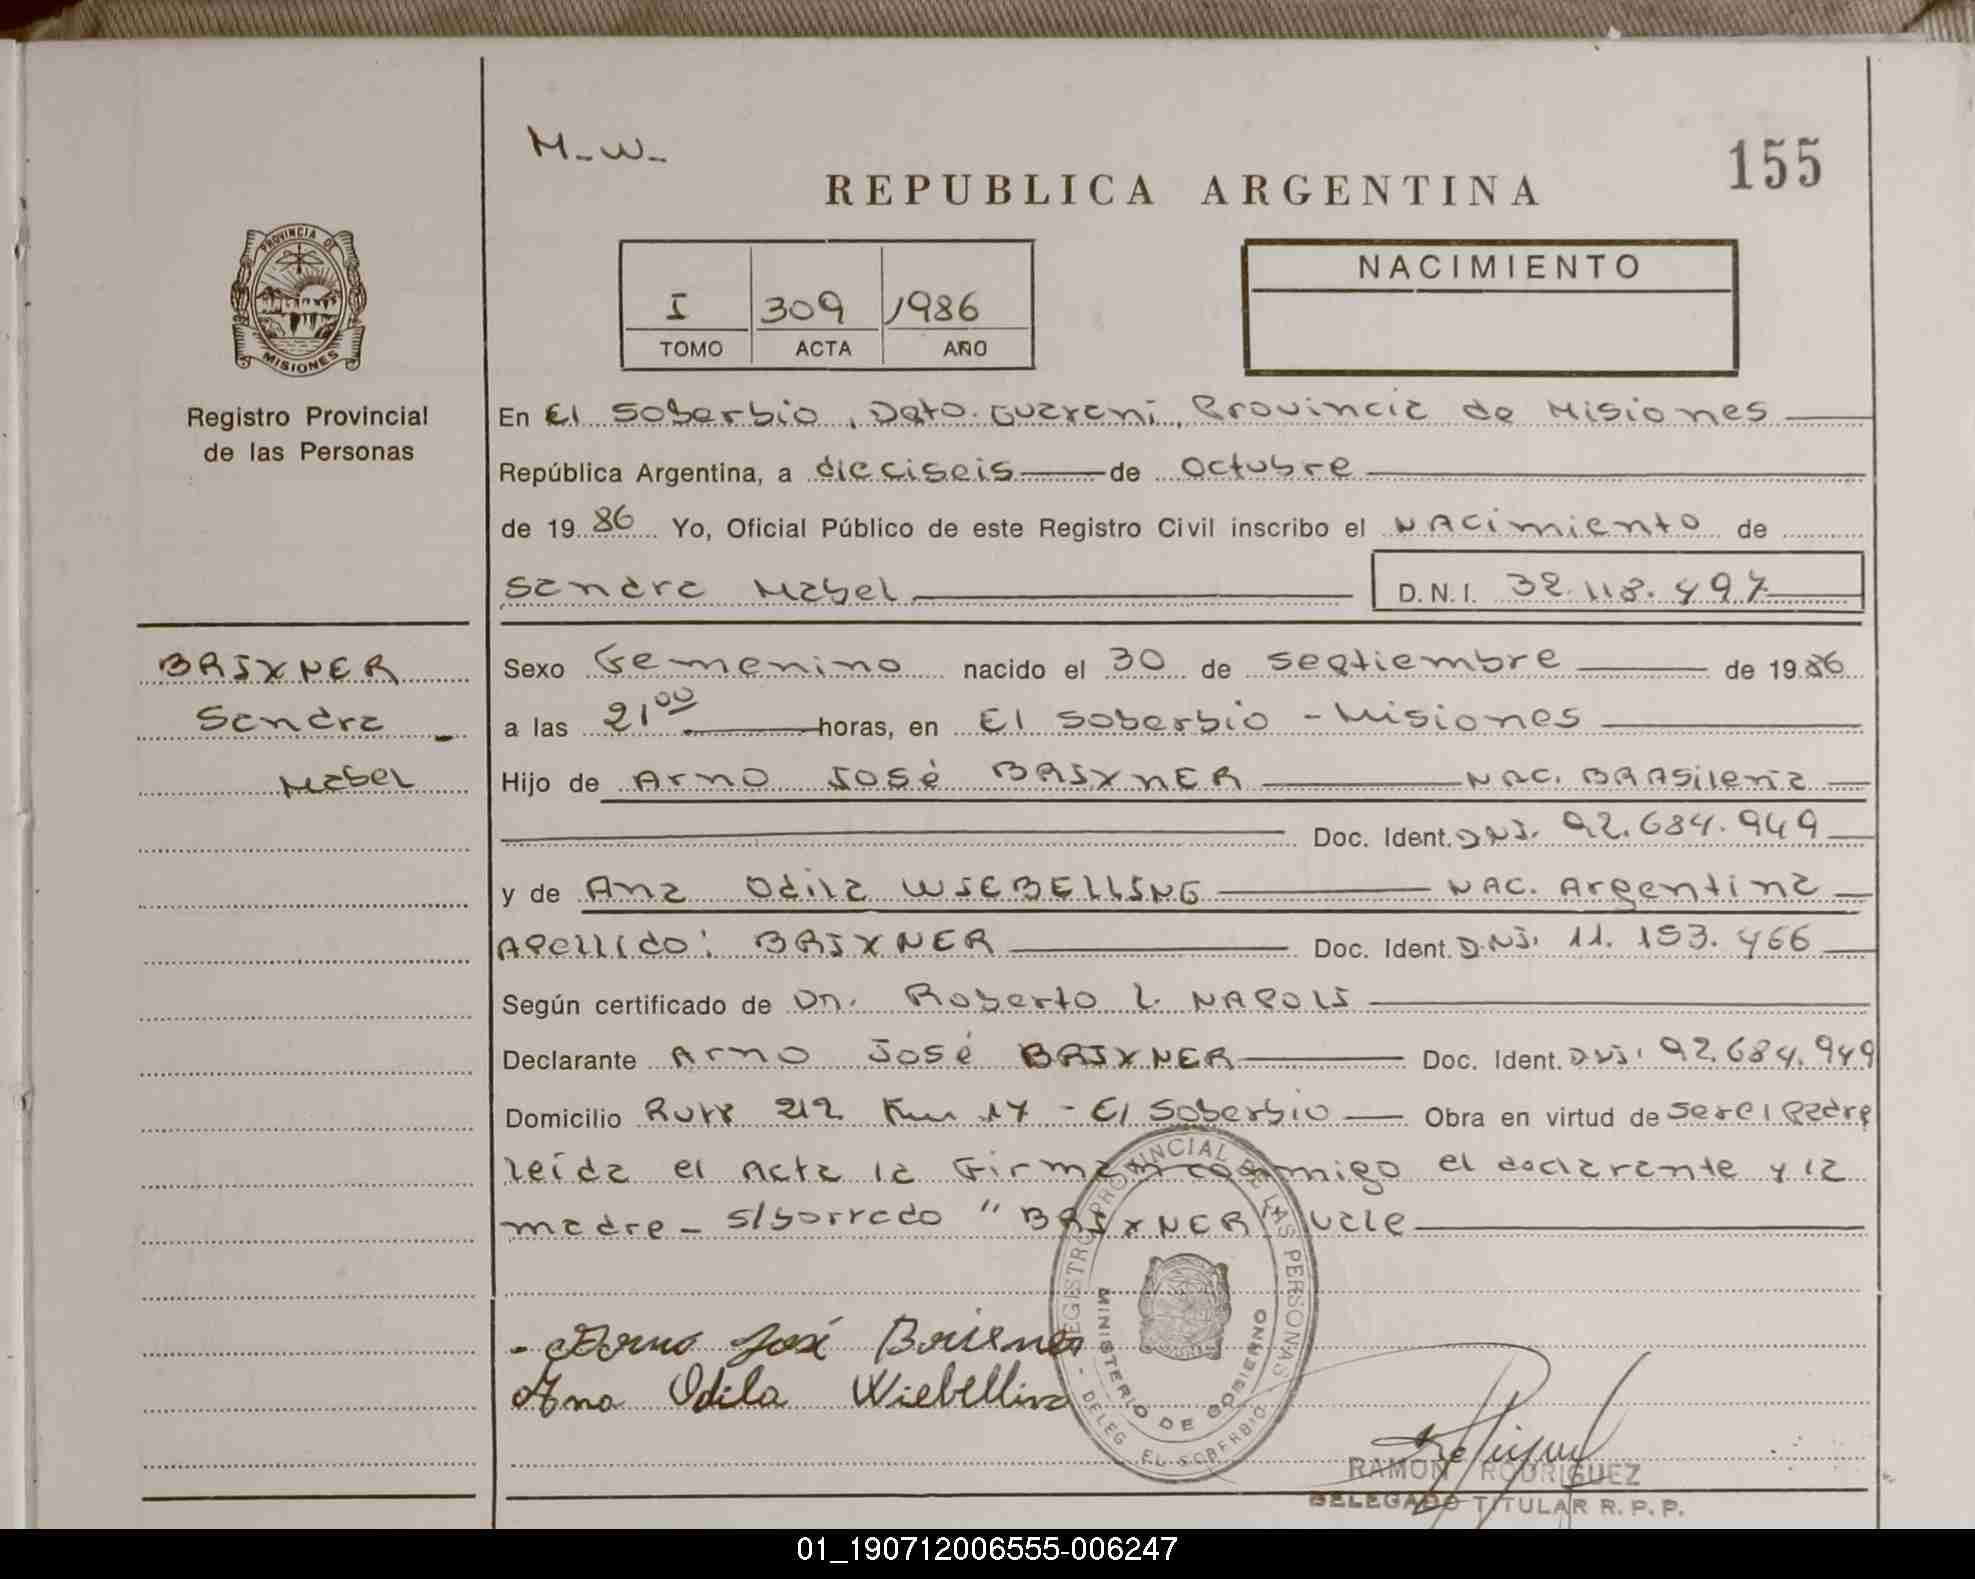 M-W-
155
REPUBLICA ARGENTINA
PROVINCIA DE
MISIONES
Registro Provincial
de las Personas
I 309 1986
TOMO ACTA AÑO
NACIMIENTO
En El Soberbio, Dpto. Guarani, Provincia de Misiones
República Argentina, a dieciseis de Octubre
de 1986 Yo, Oficial Público de este Registro Civil inscribo el NACimiento de
Sandra Mabel D.N.I. 32.118.497
BRIXNER
Sandra
Mabel
Sexo Femenino nacido el 30 de Septiembre de 1986
a las 21 00 horas, en El Soberbio - Misiones
Hijo de Arno José BRIXNER NAC. BRASileña
Doc. Ident. DNI. 92.684.949
y de Ana Odila WIEBELLING NAC. Argentina
Apellido: BRIXNER Doc. Ident. D.NI. 11.153.466
Según certificado de Dr. Roberto L. NAPOLI
Declarante Arno José BRIXNER Doc. Ident. DNI. 92.684.949
Domicilio Ruta 212 Km 17 - El Soberbio Obra en virtud de ser el padre
leída el Acta la firman conmigo el declarante y la
madre - s/borrado "BRIXNER vale
Arno José Brixner
Ana Odila Wiebelling
REGISTRO PROVINCIAL DE LAS PERSONAS
MINISTERIO DE GOBIERNO
- DELEG. EL SOBERBIO -
RAMON RODRIGUEZ
DELEGADO TITULAR R. P. P.
01_190712006555-006247